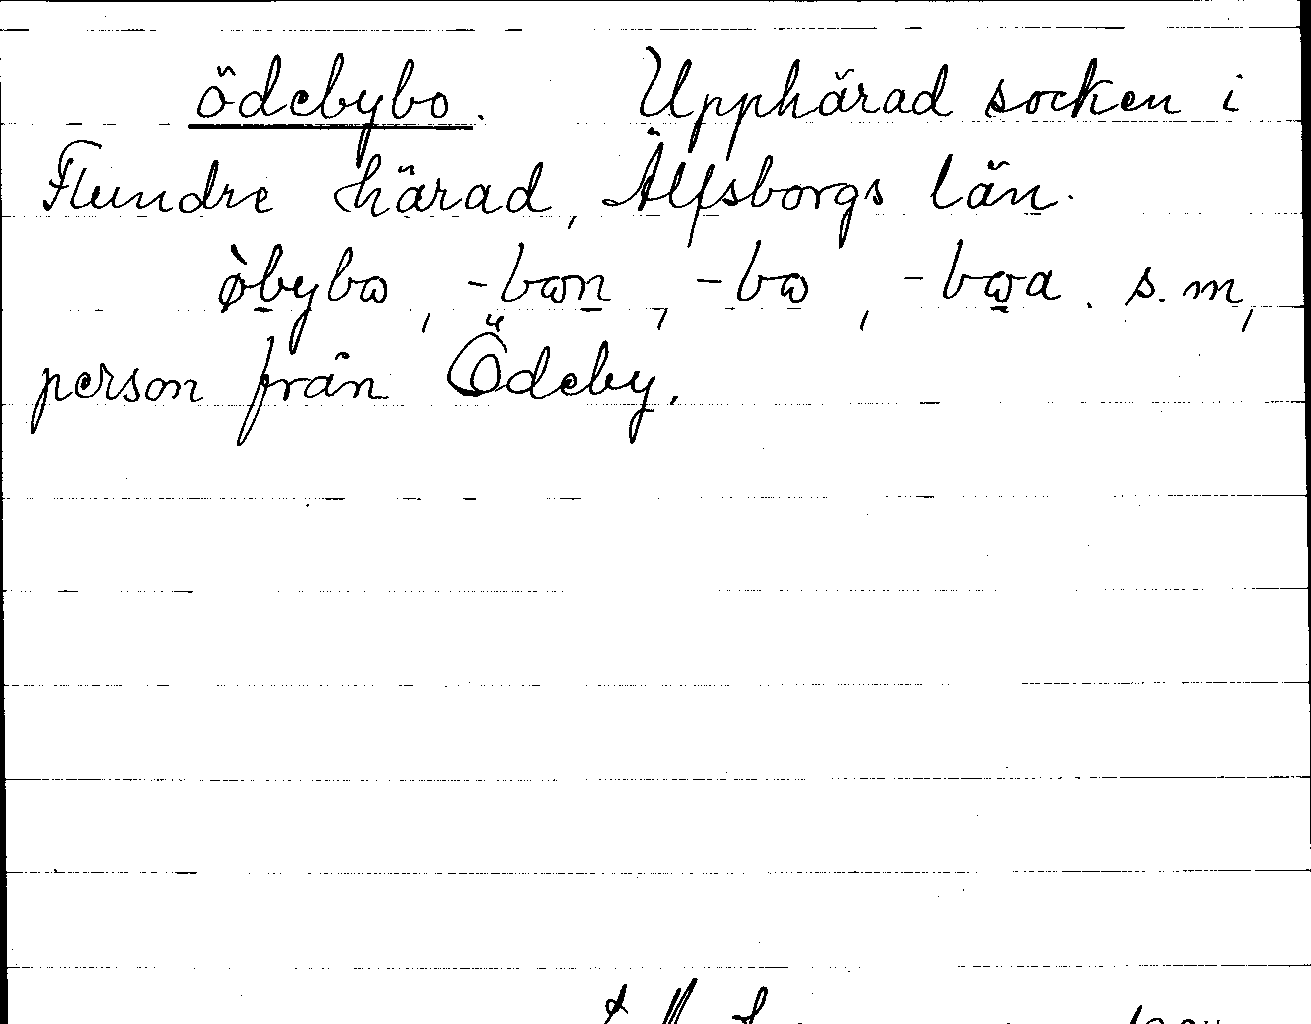 ödebybo. Upphärad socken i
Flundre härad, Älfsborgs län.
øbybɷ, -bɷn, -bɷ, -bɷa. s. m,
person från Ödeby.